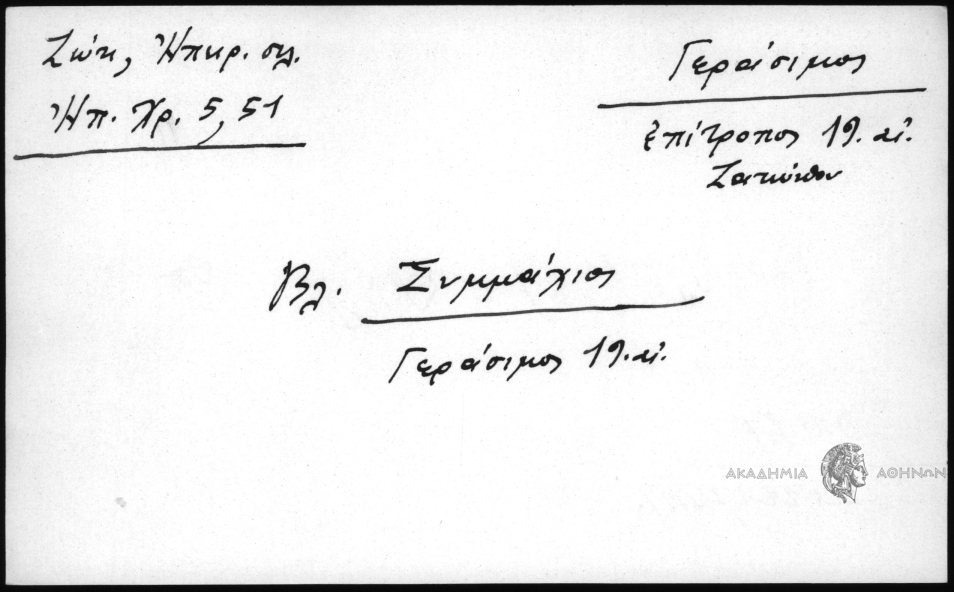 Ζώη, Ἠπειρ. σελ.
Ἠπ. Χρ. 5, 51
Γεράσιμος
ἐπίτροπος 19. αἰ.
Ζακύνθου
Βλ. Συμμάχιος
Γεράσιμος 19. αἰ.
ΑΚΑΔΗΜΙΑ ΑΘΗΝΩΝ